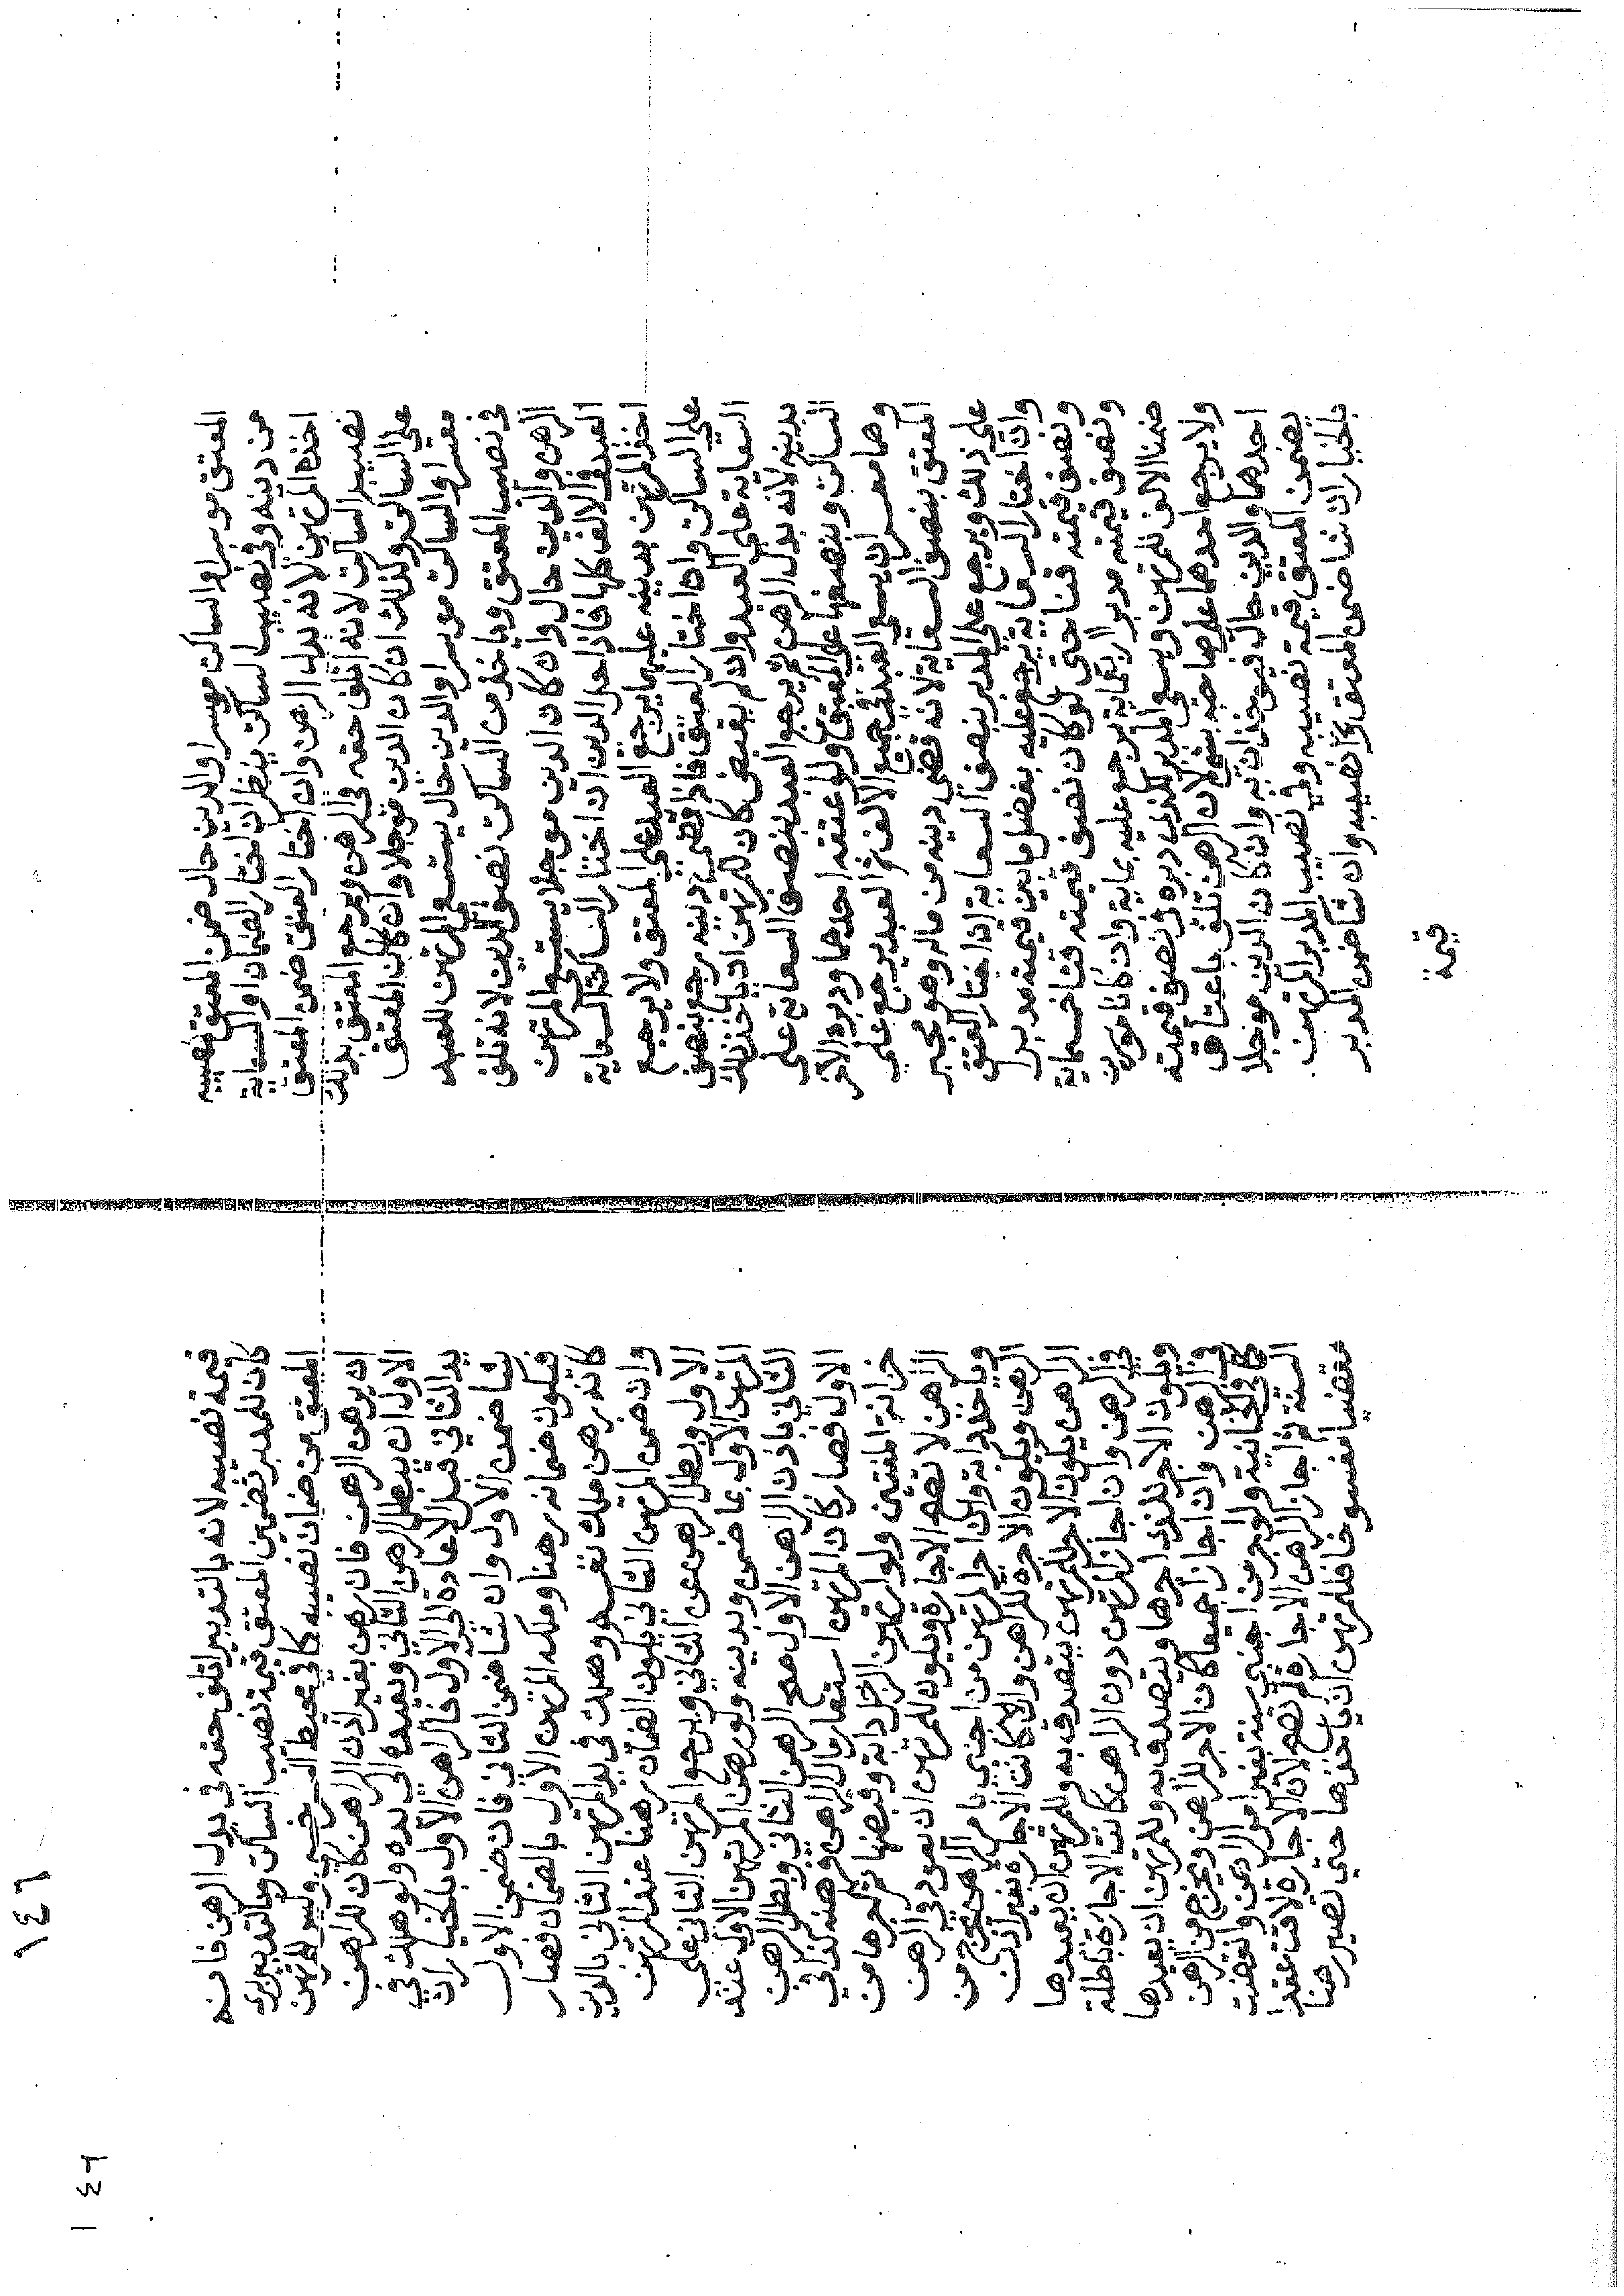 المعتق موسرا والساكت موسرا والدين حال ضمن المعتق نصيبه
من دينه وفي نصيب الساكت ينظر ان اختار الضمان او السعاية
اخذه المرتهن لانه بدل الرهن وان اختار العتق ضمن المعتق
نصيب الساكت لانه اتلف حقه في الرهن ويرجع المعتق بذلك
على الساكت وكذلك ان كان الدين مؤجلا وان كان المعتق
معسرا والساكت موسرا والدين حال يستسعي المرتهن العبد
في نصيب المعتق وياخذ من الساكت نصف الدين لانه تلف
الرهن والدين حال وان كان الدين مؤجلا يستسعي المرتهن
العبد في الالف كلها فاذا حل الدين ان اختار الساكت السعاية
اخذ المرتهن بدينه عليهما يرجع العبد على المعتق ولا يرجع
على الساكت وان اختار العتق فاذا قضيت دينه رجع بنصف
السعاية على العبد وان لم يقبض كان للمرتهن ان ياخذ ذلك
بدينه لانه بدل الرهن ثم يرجع العبد بنصف السعاية على
الساكت وبنصفها على المعتق ولو اعتقه احدهما ودبره الآخر
وهما معسران يسعى العبد في جميع الالف ثم العبد يرجع على
المعتق بنصف السعاية لانه قضى دينه من ماله وهو مجبر
على ذلك ويرجع على المدبر بنصف السعاية ان اختار العتق
وان اختار السعاية يرجع عليه بفضل ما بين قيمته مدبرا
ونصف قيمته قنا حتى لو كان نصف قيمته قنا خمسماية
ونصف قيمته مدبرا اربعماية يرجع عليه بماية وان كانا موسرين
ضمنا الالف للمرتهن ويسعى المدبر للذي دبره في نصف قيمته
ولا يرجع احدهما على صاحبه بشي لان الرهن تلف باعتاق
احدهما والدين حال فيؤخذان به وان كان الدين مؤجلا
يضمن المعتق قيمة نصيبه وفي نصيب المدبر المرتهن
بالخيار ان شا ضمن المعتق نصيبه وان شا ضمن المدبر
قيمة
قيمة نصيبه لانه بالتدبير اتلف حقه في بدل الرهن فان
كان للمدبر تضمين المعتق قيمة نصيب الساكت وبالتدبير برئ
المعتق من ضمان نصيبه كما في محيط السرخسي وليس للمرتهن
ان يرهن الرهن فان رهن بغير اذن الراهن كان للراهن
الاول ان يبطل الرهن الثاني ويعيده الى يده ولو هلك في
يد الثاني قبل الاعادة الى الاول فالراهن الاول بالخيار ان
شا ضمن الاول وان شا ضمن الثاني فان ضمن الاول
فيكون ضمانه رهنا وملكه المرتهن الاول بالضمان فصار
كانه رهن ملك نفسه وهلك في يد المرتهن الثاني بالدين
وان ضمن المرتهن الثاني يكون الضمان رهنا عند المرتهن
الاول وبطل الرهن عن الثاني ويرجع المرتهن الثاني على
المرتهن الاول بما ضمن وبدينه ولو رهن المرتهن الاول عند
الثاني باذن الراهن الاول صح الرهن الثاني وبطل الرهن
الاول فصار كان المرتهن استعار مال الراهن فرهنه كذا في
خزانة المفتين ولو ارتهن الرجل دابة وقبضها ثم آجرها من
الراهن لا تصح الاجارة ويكون للمرتهن ان يعود في الرهن
وياخذ الدابة وان اجر المرتهن من اجنبي بامر الراهن يخرج من
الرهن ويكون الاجرة للراهن وان كانت الاجارة بغير اذن
الراهن يكون الاجر للمرتهن يتصدق به وللمرتهن ان يعيدها
في الرهن وان اجاز المرتهن دون الراهن كانت الاجارة باطلة
ويكون الاجر للذي اجرها ويتصدق به وللمرتهن ان يعيدها
في الرهن وان اجازا جميعا كان الاجر للراهن ويخرج من الرهن
كما في الخانية ولو اجر من اجنبي سنة بغير امر الراهن وانقضت
السنة ثم اجاز الراهن الاجارة لم تصح لان الاجارة لاقت عقدا
منقضيا مفسوخا فللمرتهن ان ياخذها حتى تصير رهنا
١٤٦
١٤٦